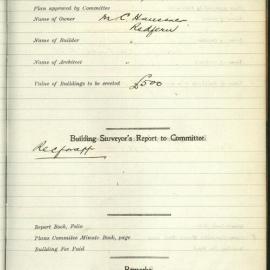 Plan approved by Committee
Name of Owner M. C.
Redfern
Name of Builder "
Name of Architect "
Value of Buildings to be erected £500
Building Surveyor's Report to Committee.
Report Book, Folio
Plans Committee Minute Book, page
Building Fee Paid
Remarks